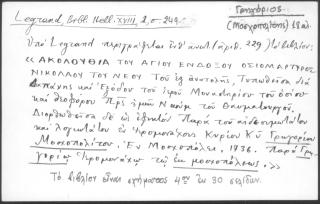 Legrand, Bibl. Hell. XVIII, 2, σ. 249.
Γρηγόριος
(Μοσχοπολίτης) 18 αι.
Ὑπὸ Legrand περιγράφεται ὑπ' αὐτ. (ἀριθ. 229) τὸ βιβλίον:
«ΑΚΟΛΟΥΘΙΑ ΤΟΥ ΑΓΙΟΥ ΕΝΔΟΞΟΥ ΟΣΙΟΜΑΡΤΥΡΟΣ
ΝΙΚΟΛΑΟΥ ΤΟΥ ΝΕΟΥ τοῦ ἐξ ἀνατολῆς, Τυπωθεῖσα διὰ
δαπάνης καὶ ἐξόδου τοῦ ἱεροῦ Μοναστηρίου τοῦ ὁσίου
καὶ θεοφόρου Πρς ἡμῶν Ναοὺμ τοῦ Θαυματουργοῦ.
Διορθωθεῖσα δὲ ὡς ἐξὸν Παρὰ τοῦ αἰδεσιμωτάτου
καὶ λογιωτάτου ἐν Ἱερομονάχοις Κυρίου Κῦ Γρηγορίου
Μοσχοπολίτου. Ἐν Μοσχοπόλει, 1736. Παρὰ Γρη-
γορίῳ Ἱερομονάχῳ τῷ ἐκ μοσχοπόλεως.»
Τὸ βιβλίον εἶναι σχήματος 4ον ἐκ 30 σελίδων.